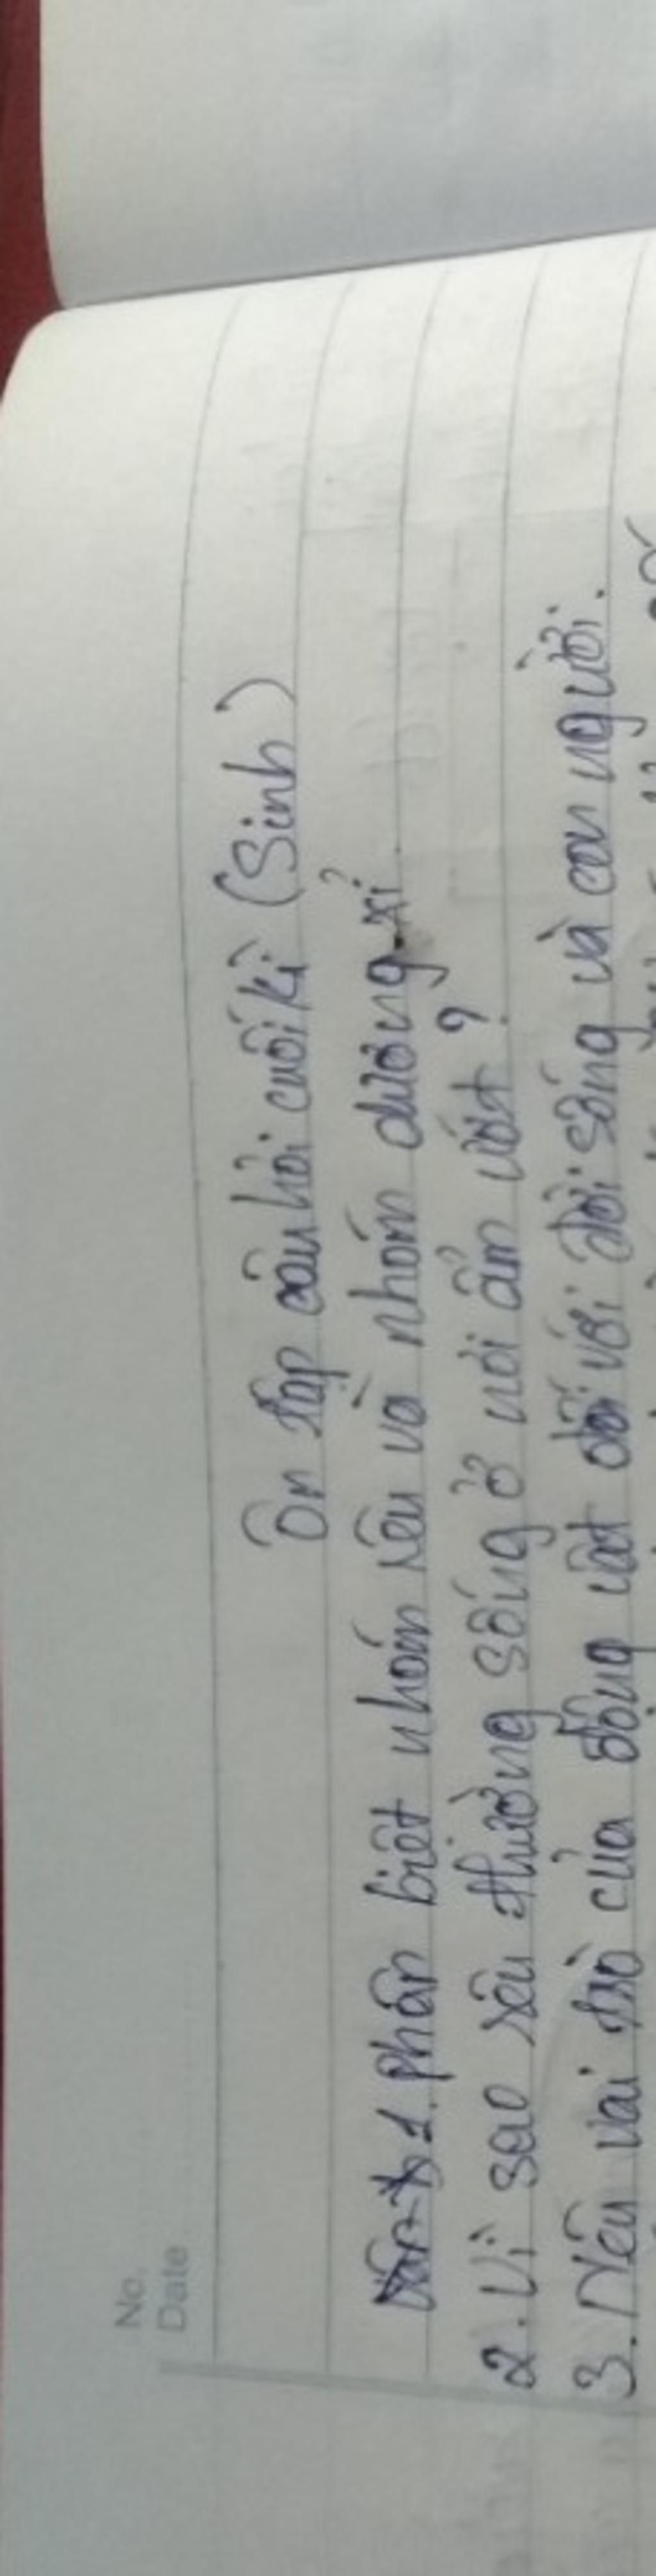 No.
Date
Ôn tập câu hỏi cuối kì (Sinh)
1. phân biệt nhóm rêu và nhóm dương xỉ
2. Vì sao rêu thường sống ở nơi ẩm ướt?
3. Nêu vai trò của động vật đối với đời sống và con người.